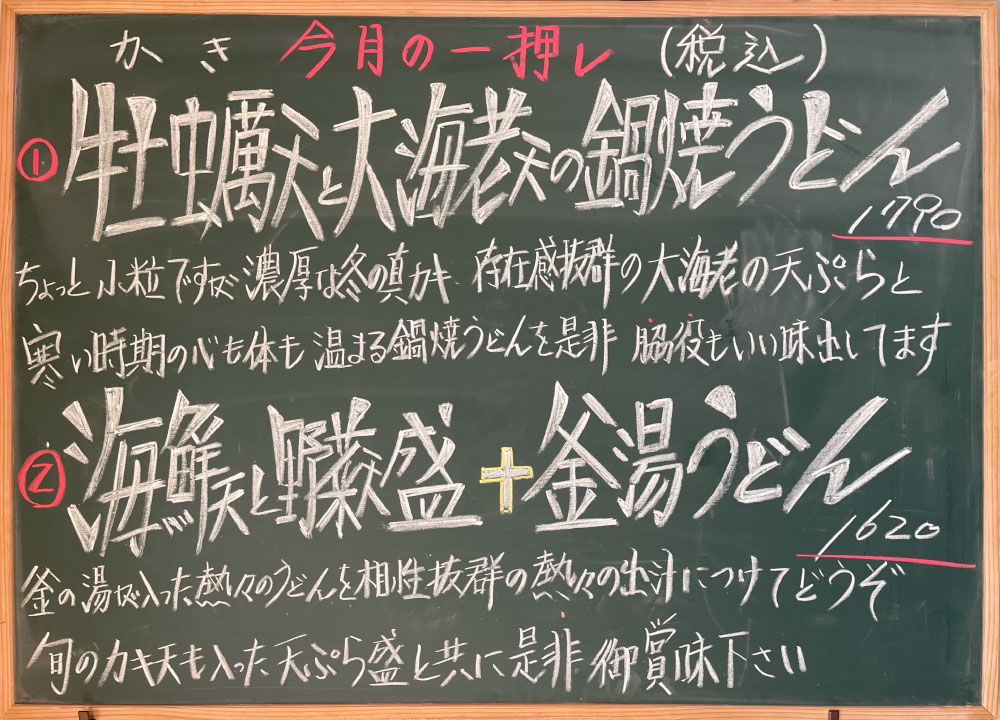 かき 今月の一押し (税込)
① 牡蠣天と大海老天の鍋焼うどん
1790
ちょっと小粒ですが濃厚な冬の真カキ 存在感抜群の大海老の天ぷらと
寒い時期の心も体も温まる鍋焼うどんを是非 脇役もいい味出してます
② 海鮮天と野菜天盛+釜湯うどん
1620
釜の湯が入った熱々のうどんを相性抜群の熱々の出汁につけてどうぞ
旬のカキ天も入った天ぷら盛と共に是非御賞味下さい